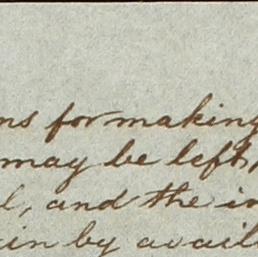 ns for making
may be left,
l, and the in
in by avail